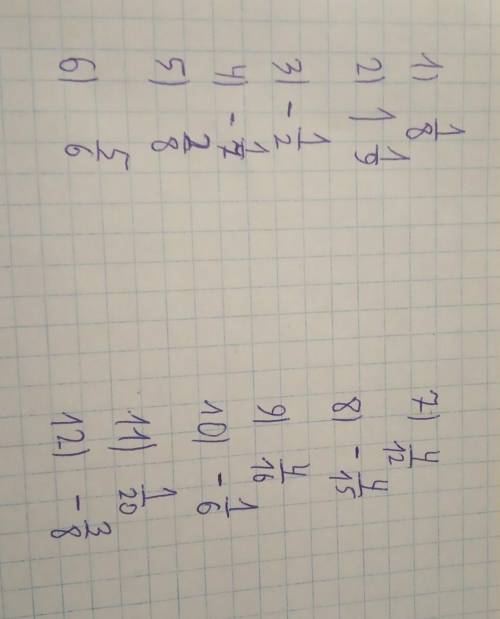 1) 1/8
2) 1 1/9
3) - 1/2
4) - 1/
5) /8
6) 5/6
7) 4/12
8) - 4/15
9) 4/16
10) - 1/6
11) 1/20
12) - 3/8